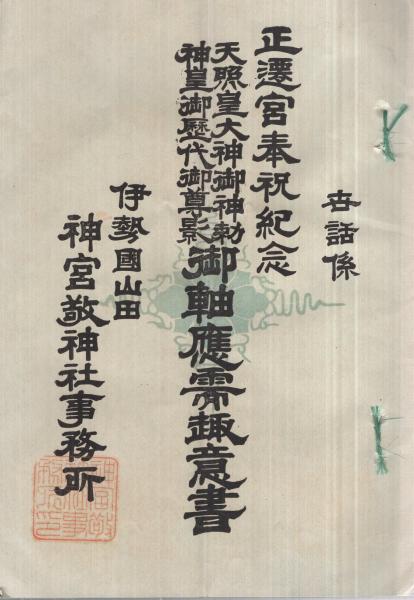 世話係
正遷宮奉祝紀念
天照皇大神御神勅
神皇御歴代御尊影
御軸應需趣意書
伊勢國山田
神宮敬神社事務所